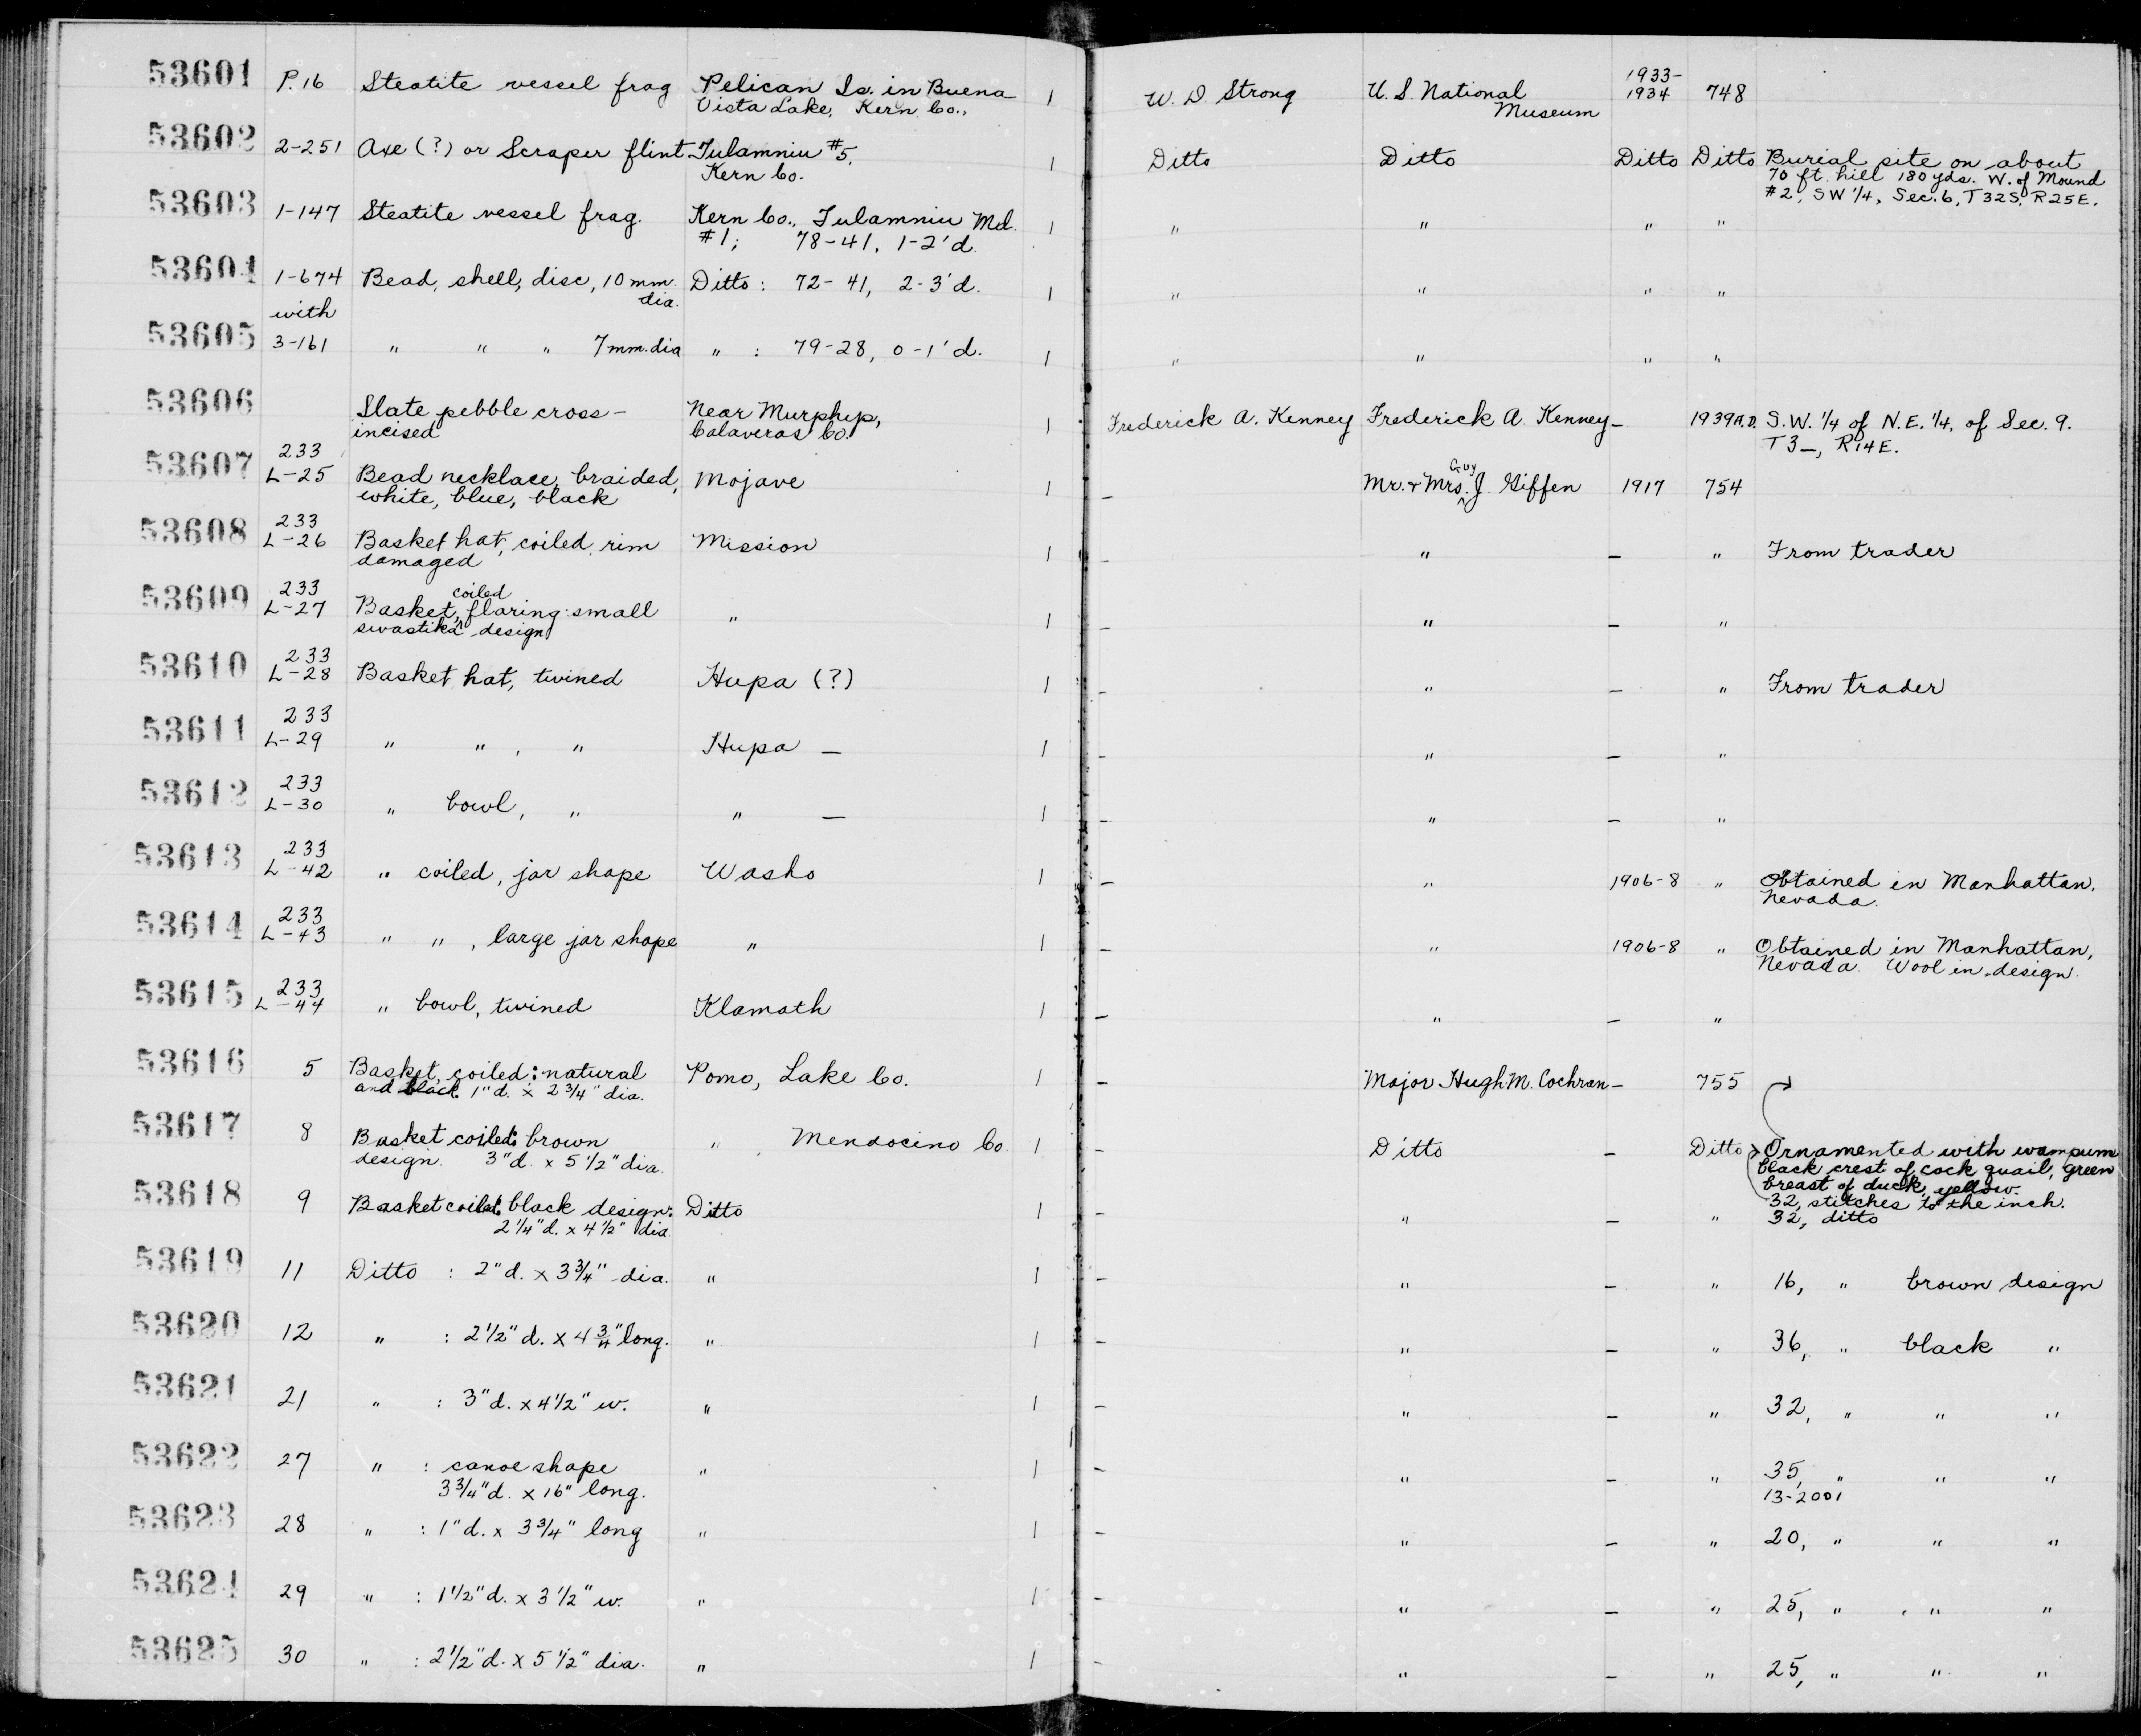 53601 P.16 Steatite vessel frag Pelican Is. in Buena 1 W. D. Strong U. S. National 1933- 748
Vista Lake, Kern Co., Museum 1934
53602 2-251 Axe (?) or Scraper flint Tulamniu #5, 1 Ditto Ditto Ditto Ditto Burial site on about
Kern Co. 70 ft. hill 180 yds. W. of Mound
#2, SW 1/4, Sec. 6, T32S, R25E.
53603 1-147 Steatite vessel frag. Kern Co., Tulamniu Md. 1 " " " "
#1; 78-41, 1-2' d.
53604 1-674 Bead, shell, disc, 10 mm. Ditto : 72-41, 2-3' d. 1 " " " "
with dia.
53605 3-161 " " " 7 mm. dia " : 79-28, 0-1' d. 1 " " " "
53606 Slate pebble cross- Near Murphys, 1 Frederick A. Kenney Frederick A. Kenney - 1939A.D. S.W. 1/4 of N.E. 1/4, of Sec. 9.
incised Calaveras Co. T3_, R14E.
53607 233 L-25 Bead necklace, braided, Mojave 1 - Mr. + Mrs. Guy J. Giffen 1917 754
white, blue, black
53608 233 L-26 Basket hat, coiled, rim Mission 1 - " - " From trader
damaged
53609 233 L-27 Basket, coiled flaring: small " 1 - " - "
swastika design
53610 233 L-28 Basket hat, twined Hupa (?) 1 - " - " From trader
53611 233 L-29 " " , " Hupa - 1 - " - "
53612 233 L-30 " bowl, " " - 1 - " - "
53613 233 L-42 " coiled, jar shape Washo 1 - " 1906-8 " Obtained in Manhattan,
Nevada.
53614 233 L-43 " " , large jar shape " 1 - " 1906-8 " Obtained in Manhattan,
Nevada. Wool in design.
53615 233 L-44 " bowl, twined Klamath 1 - " - "
53616 5 Basket, coiled: natural Pomo, Lake Co. 1 - Major Hugh M. Cochran - 755
and black 1" d. x 2 3/4" dia.
53617 8 Basket coiled: brown " , Mendocino Co. 1 - Ditto - Ditto Ornamented with wampum
design. 3" d. x 5 1/2" dia. black crest of cock quail, green
breast of duck, yellow.
32, stitches to the inch.
53618 9 Basket coiled: black design: Ditto 1 - " - " 32, ditto
2 1/4" d. x 4 1/2" dia
53619 11 Ditto : 2" d. x 3 3/4" dia. " 1 - " - " 16, " brown design
53620 12 " : 2 1/2" d. x 4 3/4" long. " 1 - " - " 36, " black "
53621 21 " : 3" d. x 4 1/2" w. " 1 - " - " 32, " " "
53622 27 " : canoe shape " 1 - " - " 35, " " "
3 3/4" d. x 16" long. 13-2001
53623 28 " : 1" d. x 3 3/4" long " 1 - " - " 20, " " "
53624 29 " : 1 1/2" d. x 3 1/2" w. " 1 - " - " 25, " " "
53625 30 " : 2 1/2" d. x 5 1/2" dia. " 1 - " - " 25, " " "